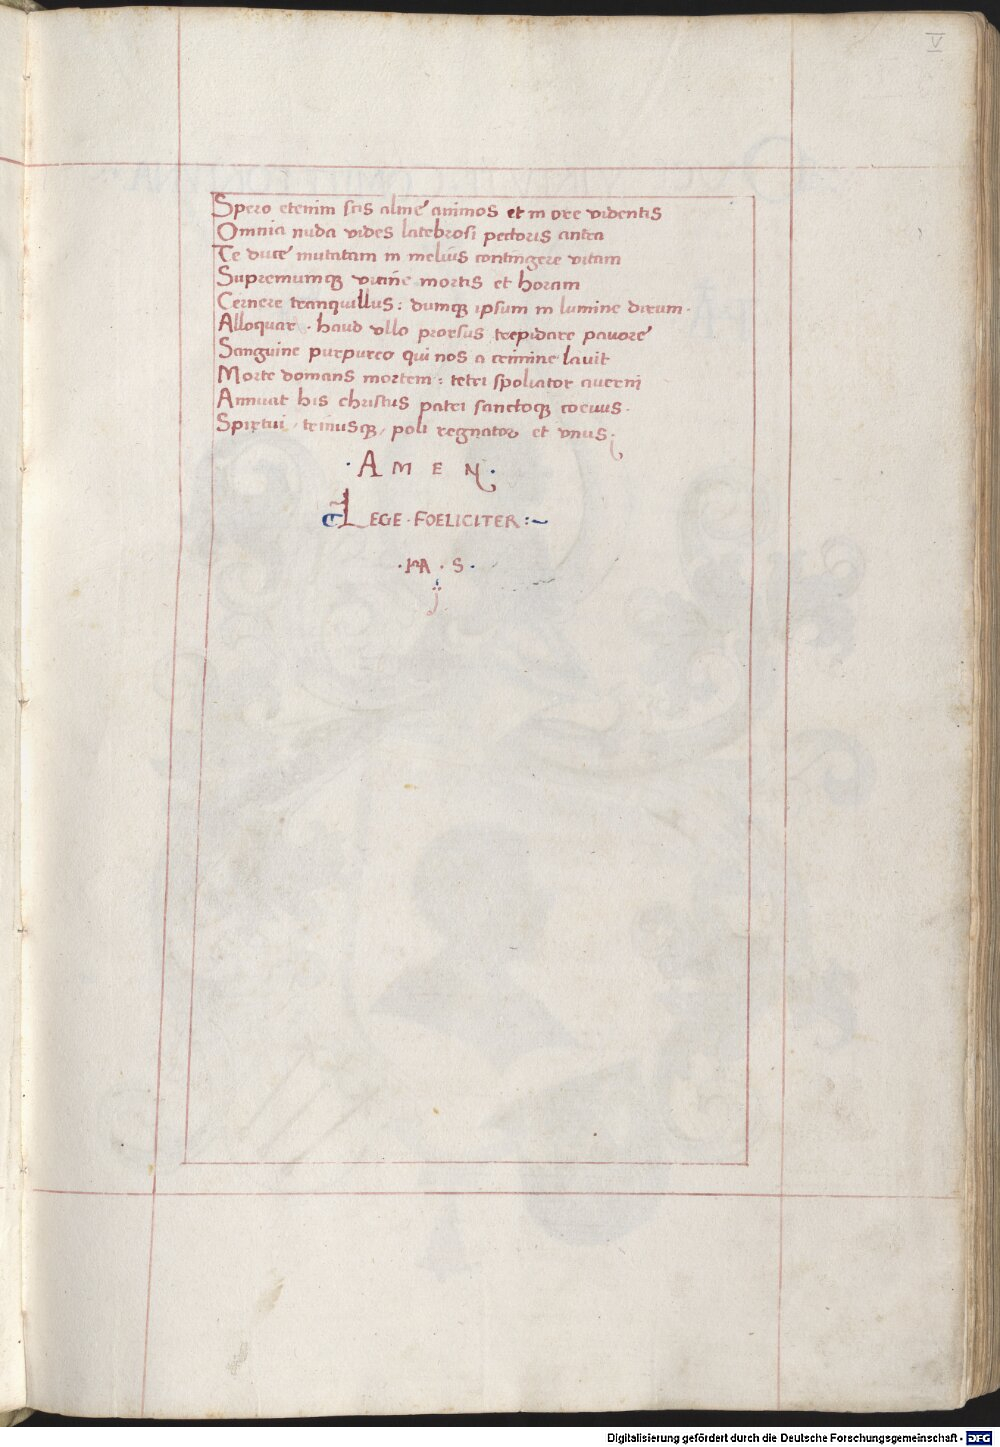 V
Spero etenim scis alme animos et in ore videntis
Omnia nuda vides latebrosi pectoris antra
Te duce mutatam in melius contingere vitam
Supremumq₃ vicine mortis et horam
Cernere tranquillus: dumq₃ ipsum in lumine dicum.
Alloquar. haud vllo prorsus trepidare pauore
Sanguine purpureo qui nos a crimine lauit
Morte domans mortem: tetri spoliator auerni
Annuat his christus patri sanctoq₃ coeuus.
Spirtui, trinusq₃, poli regnator et vnus;
·AMEN·
LEGE·FOELICITER:~
· S·
Digitalisierung gefördert durch die Deutsche Forschungsgemeinschaft - DFG